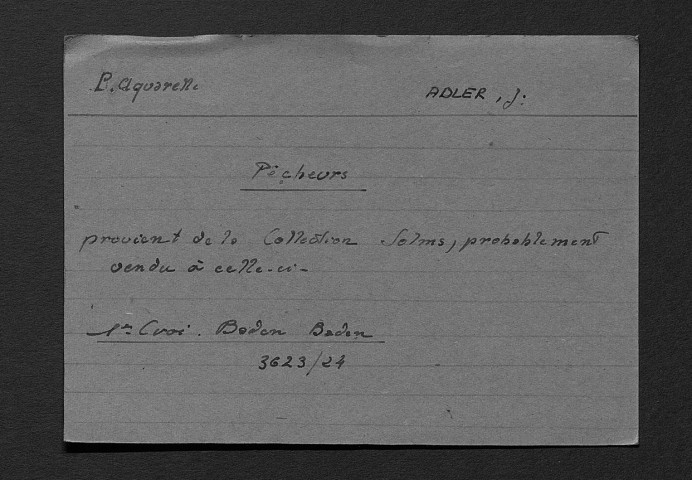 P. Aquarelle
ADLER, J:
Pêcheurs
provient de la Collection Solms, probablement
vendu à celle-ci-
Baden Baden
3623/24